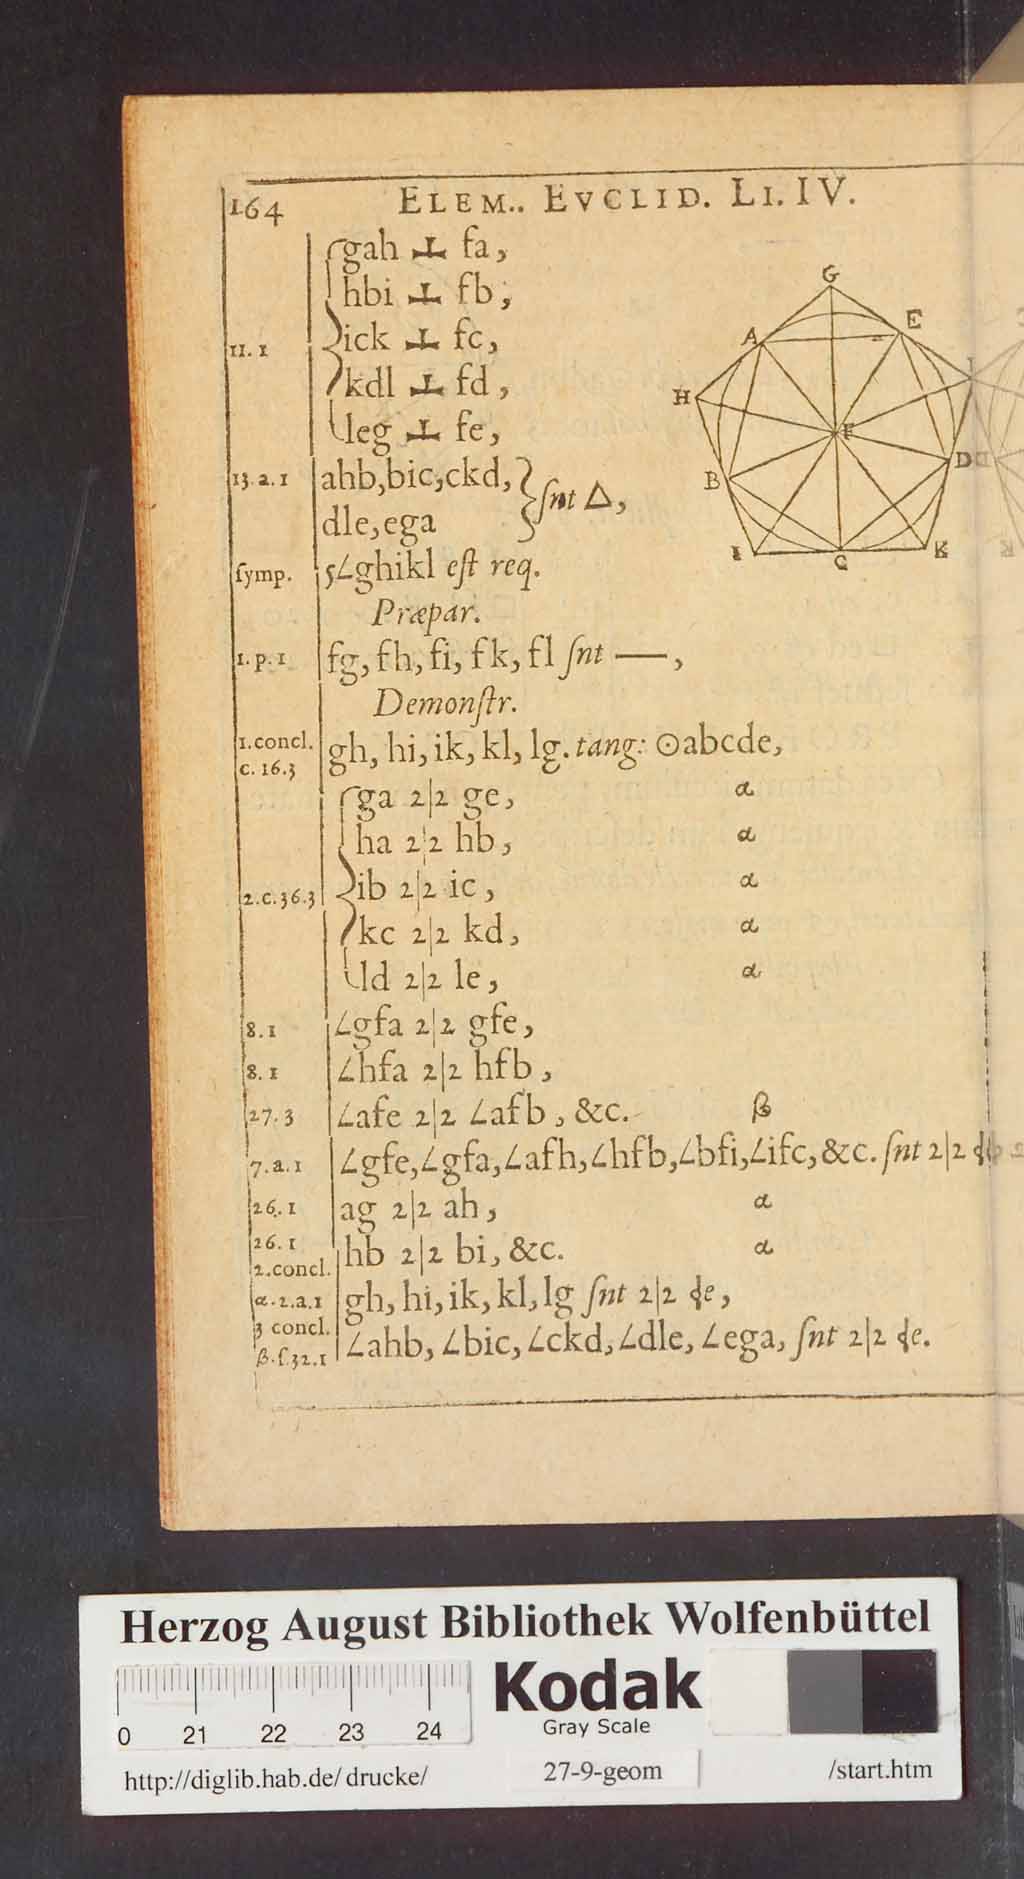 164 ELEM.. EVCLID. LI. IV.
gah ⊥ fa,
hbi ⊥ fb,
11. 1 ick ⊥ fc,
kdl ⊥ fd,
leg ⊥ fe,
13. a. 1 ahb, bic, ckd,
dle, ega } ſnt △,
ſymp. 5∠ghikl eſt req.
Præpar.
1. p. 1 fg, fh, fi, fk, fl ſnt —,
Demonſtr.
1. concl. c. 16. 3 gh, hi, ik, kl, lg. tang: ⊙abcde,
ga 2|2 ge, α
ha 2|2 hb, α
2. c. 36. 3 ib 2|2 ic, α
kc 2|2 kd, α
ld 2|2 le, α
8. 1 ∠gfa 2|2 gfe,
8. 1 ∠hfa 2|2 hfb,
27. 3 ∠afe 2|2 ∠afb, &c. β
7. a. 1 ∠gfe, ∠gfa, ∠afh, ∠hfb, ∠bfi, ∠ifc, &c. ſnt 2|2
26. 1 ag 2|2 ah, α
26. 1 hb 2|2 bi, &c. α
2. concl.
α. 2. a. 1 gh, hi, ik, kl, lg ſnt 2|2 ɖe,
3 concl.
β. ſ. 32. 1 ∠ahb, ∠bic, ∠ckd, ∠dle, ∠ega, ſnt 2|2 ɖe.
G
A E
H L
F
B D
I C K
Herzog August Bibliothek Wolfenbüttel
Kodak
Gray Scale
0 21 22 23 24
http://diglib.hab.de/drucke/ 27-9-geom /start.htm